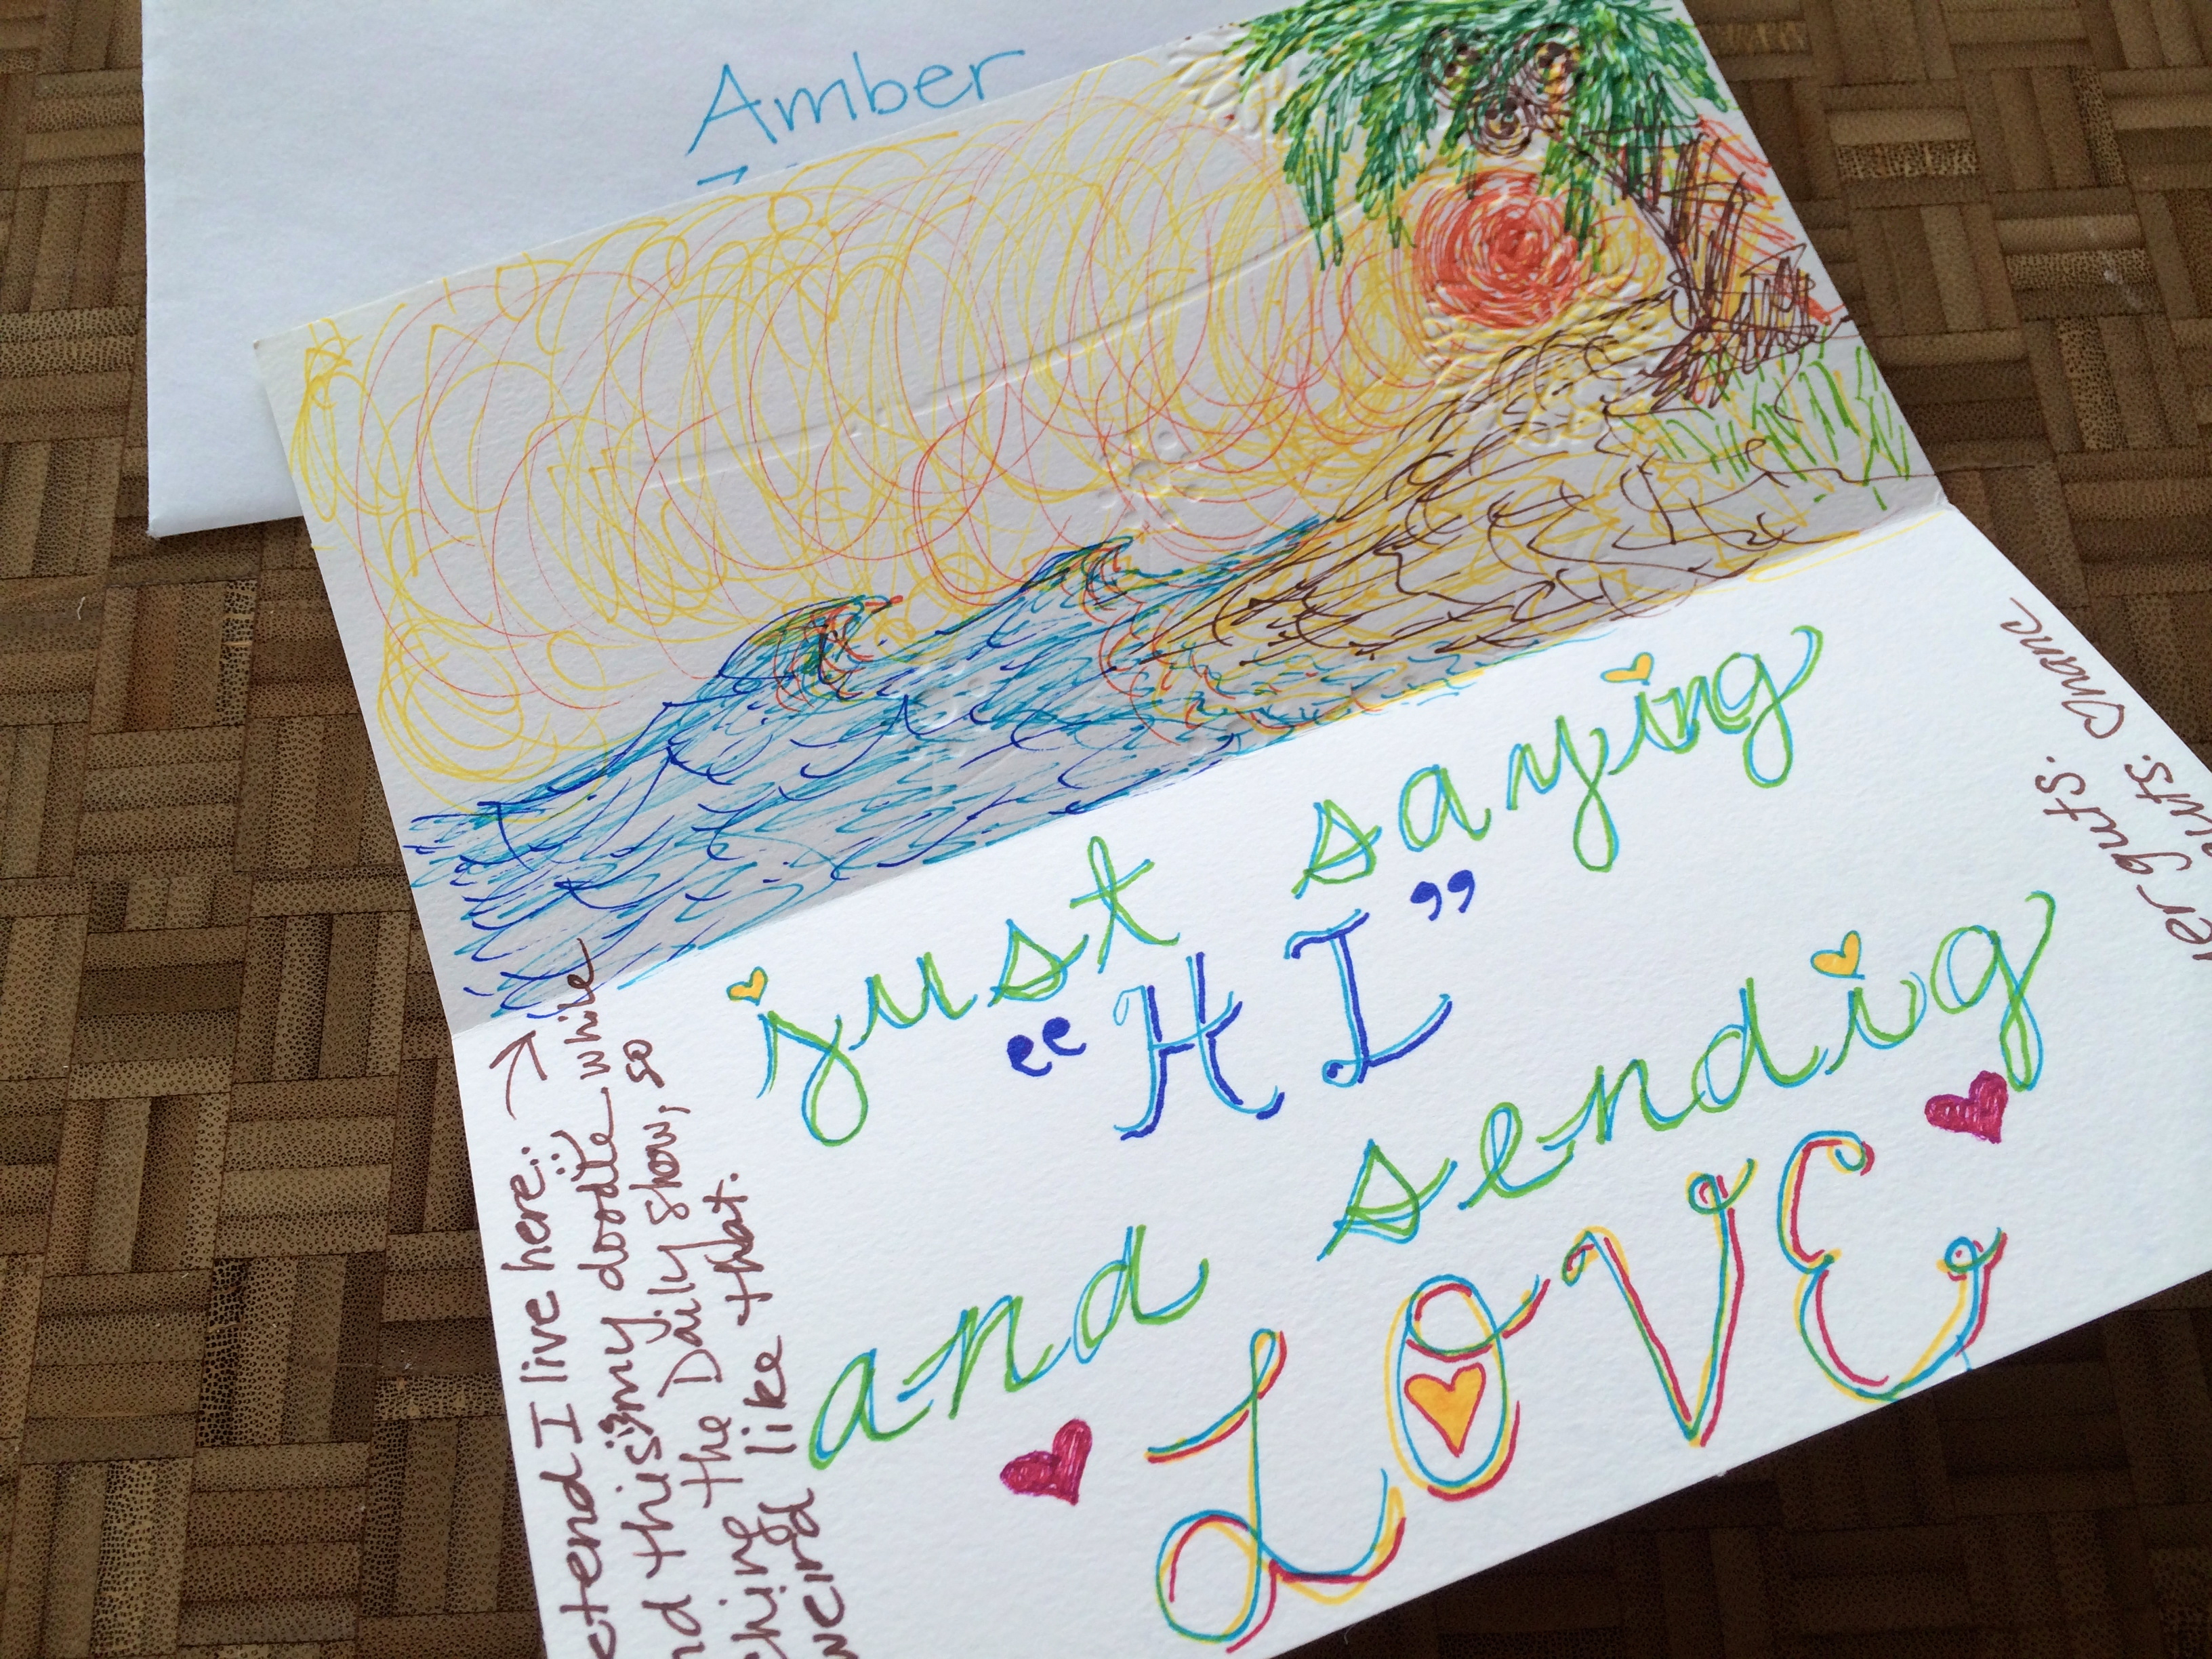 Amber
just saying
"HI"
and sendig
LOVE
etend I live here:
nd this is my doodle while
hing the Daily show, so
weird like that.
er guts: Diane